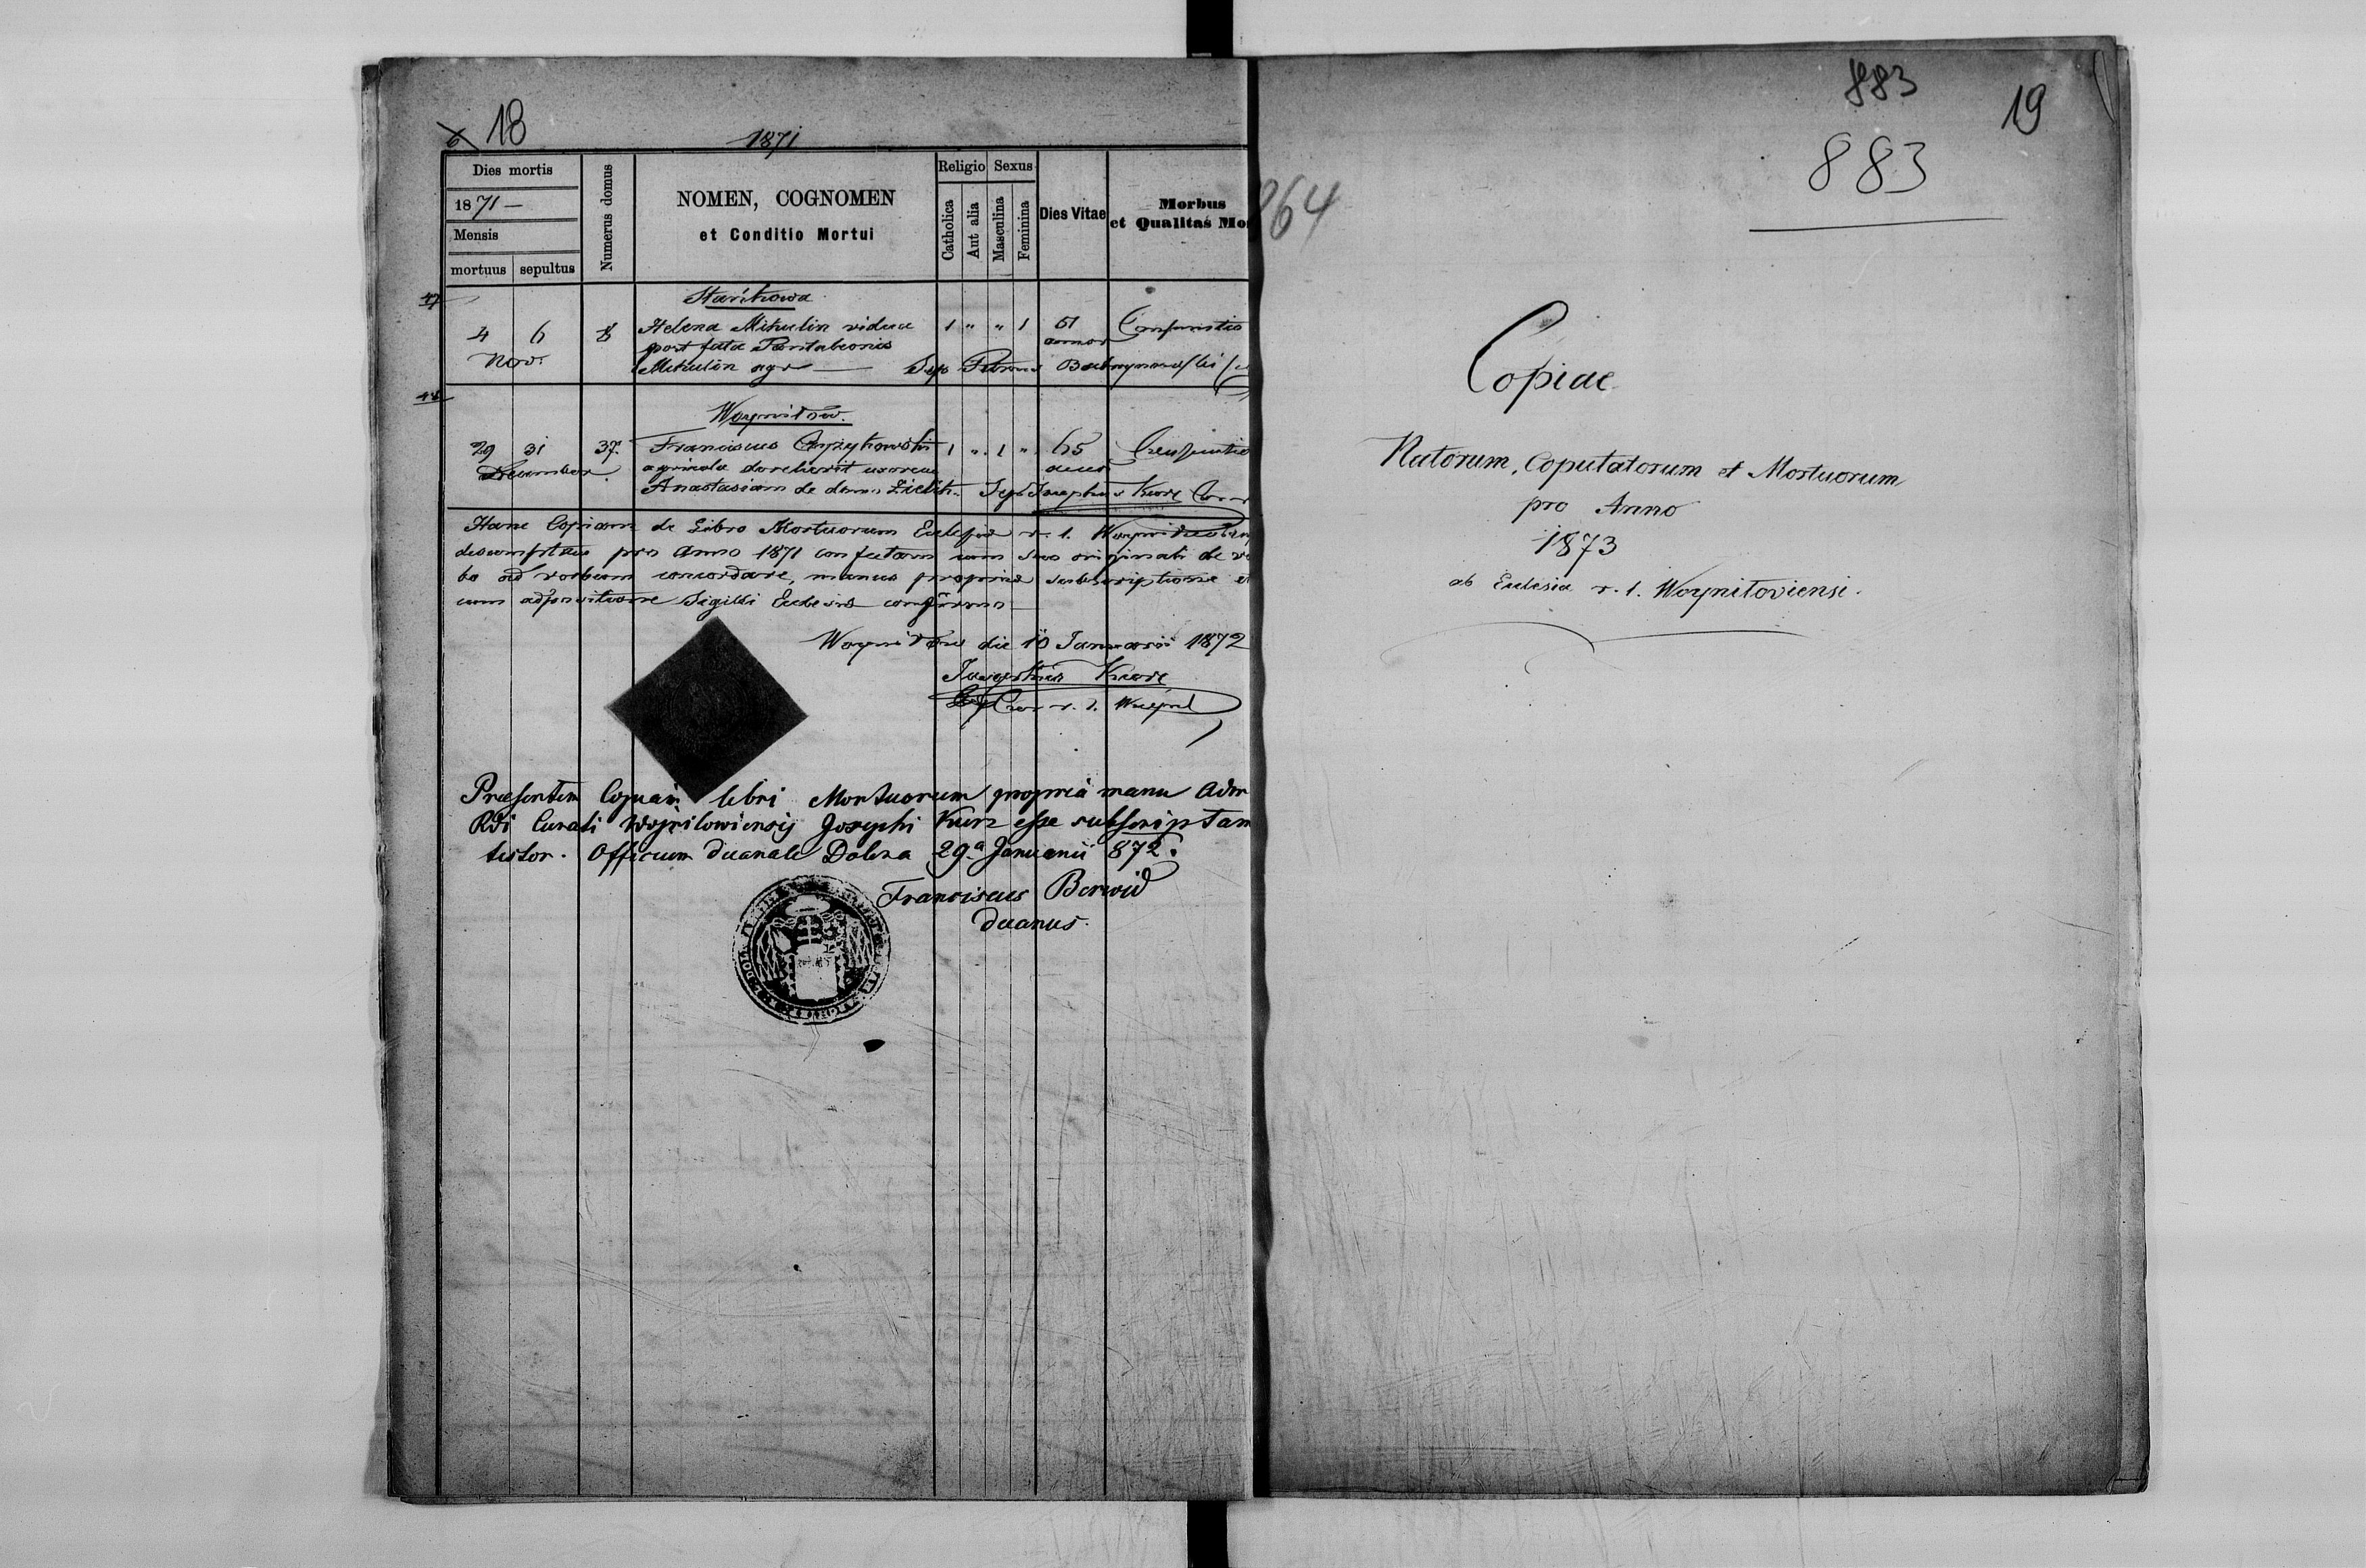 18
1871
Dies mortis
1871 —
Mensis
mortuus sepultus
Numerus domus
NOMEN, COGNOMEN
et Conditio Mortui
Religio Sexus
Catholica
Aut alia
Masculina
Feminina
Dies Vitae
Morbus
et Qualitas Mo
47
4 6 8 Helena Mikulin vidua 1 " " 1 51
Nov. post fata Pantaleonis annor
Mikulin agr — Sep Petrus
48
29 31 37. Franciscus 1 " 1 " 65
December agricola uxorem
Anastasiam de domo Sep Josephus Kurz
Hanc Copiam de Libro Mortuorum Eclesiae r. l.
desumptam pro Anno 1871 confectam cum suo originali de ver
bo ad verbum concordare, manus propriae subscriptione et
cum adpositione Sigilli Eclesiae confirmo
die 10 Januarii 1872
Josephus Kurz
r. l.
Praesentem Copiam libri Mortuorum propria manu Adm
Rdi Curati Wojnilowiensis Josephi Kurz esse subscriptam
testor. Officium decanale Dolina 29.a Januarii 872.
Franciscus Berwid
decanus.
864
883
19
883
Copiae
Natorum, Copulatorum et Mortuorum
pro Anno
1873
ab Eclesia r. l. Woyniloviensi.